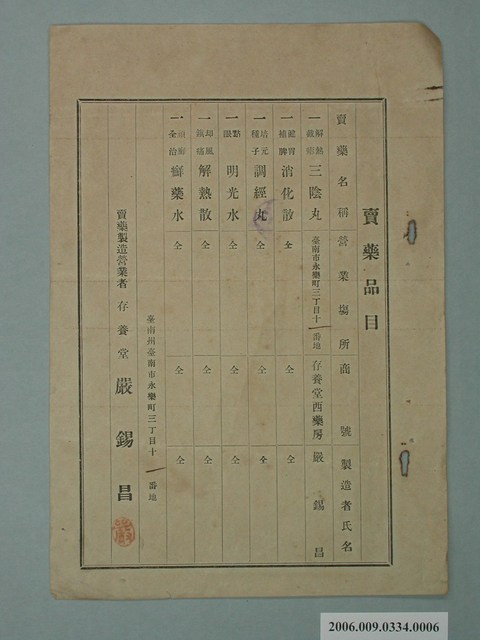 賣藥品目
賣藥名稱 營業場所 商號 製造者氏名
一 解熱 三陰丸 臺南市永樂町三丁目十一番地 存養堂西藥房 嚴錫昌
一 健胃補脾 消化散 仝 仝 仝
一 培元種子 調經丸 仝 仝 仝
一 點眼 明光水 仝 仝 仝
一 却風鎮痛 解熱散 仝 仝 仝
一 頑癬全治 癬藥水 仝 仝 仝
臺南州臺南市永樂町三丁目十一番地
賣藥製造營業者 存養堂 嚴錫昌
2006.009.0334.0006